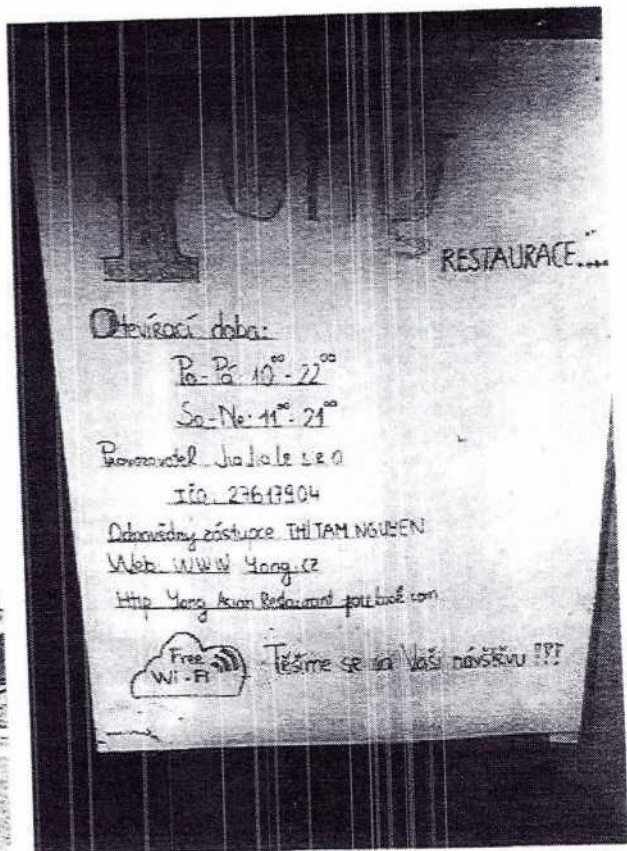 Yong
RESTAURACE....
Otevírací doba:
Po-Pá: 10⁰⁰-22⁰⁰
So-Ne: 11⁰⁰-21⁰⁰
Provozovatel
IČO. 27617904
Odpovědný zástupce THI TAM NGUYEN
Web. WWW Yong.cz
Http Yong Asian Restaurant facebook com
Free
Wi-Fi
Těšíme se na Vaši návštěvu !!!